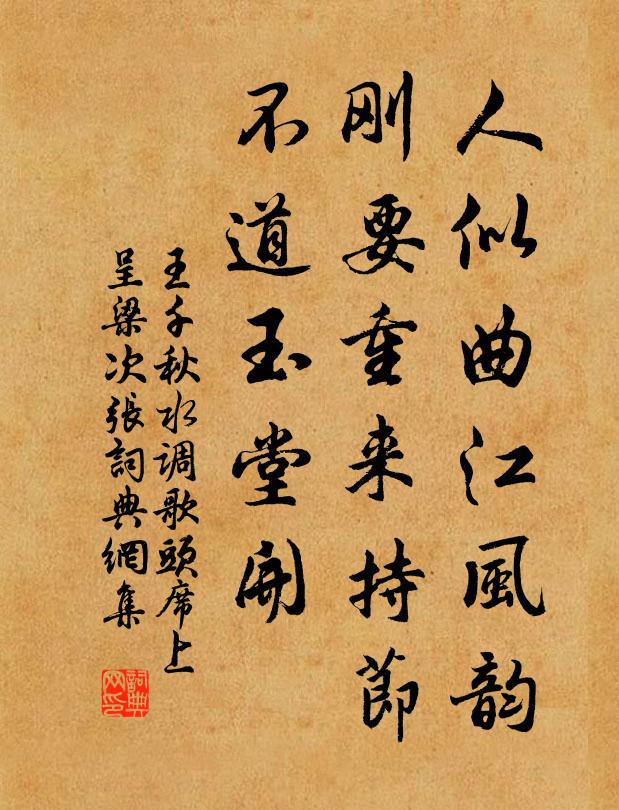 人似曲江風韵
刚要重来持節
不道玉堂开
王千秋水调歌頭席上
呈梁次張詞典網集
詞典网印